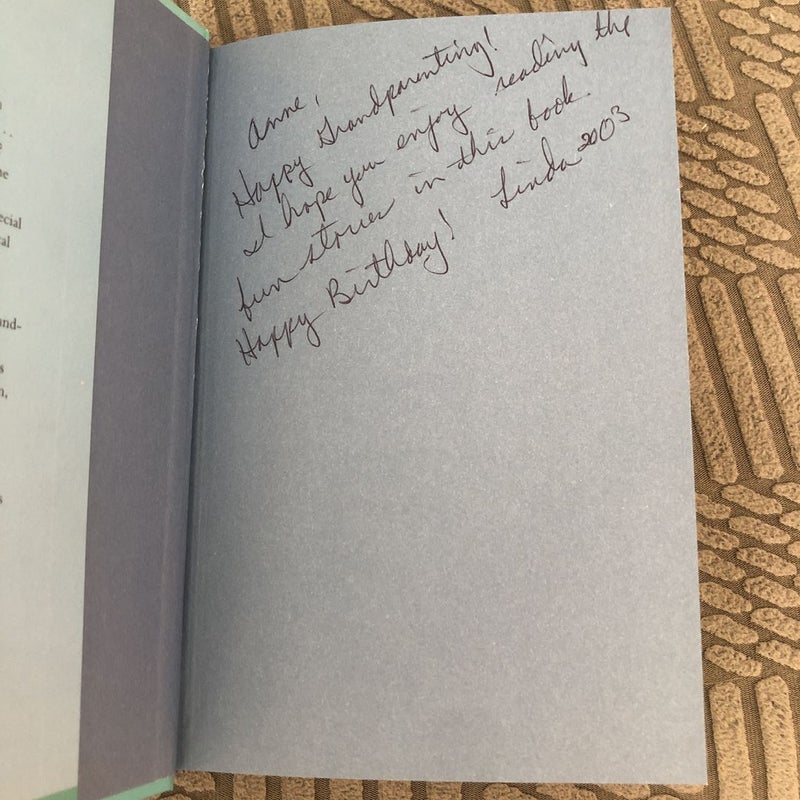 Anne,
Happy Grandparenting!
I hope you enjoy reading the
fun stories in this book.
Happy Birthday! Linda 2003
ecial
al
and-